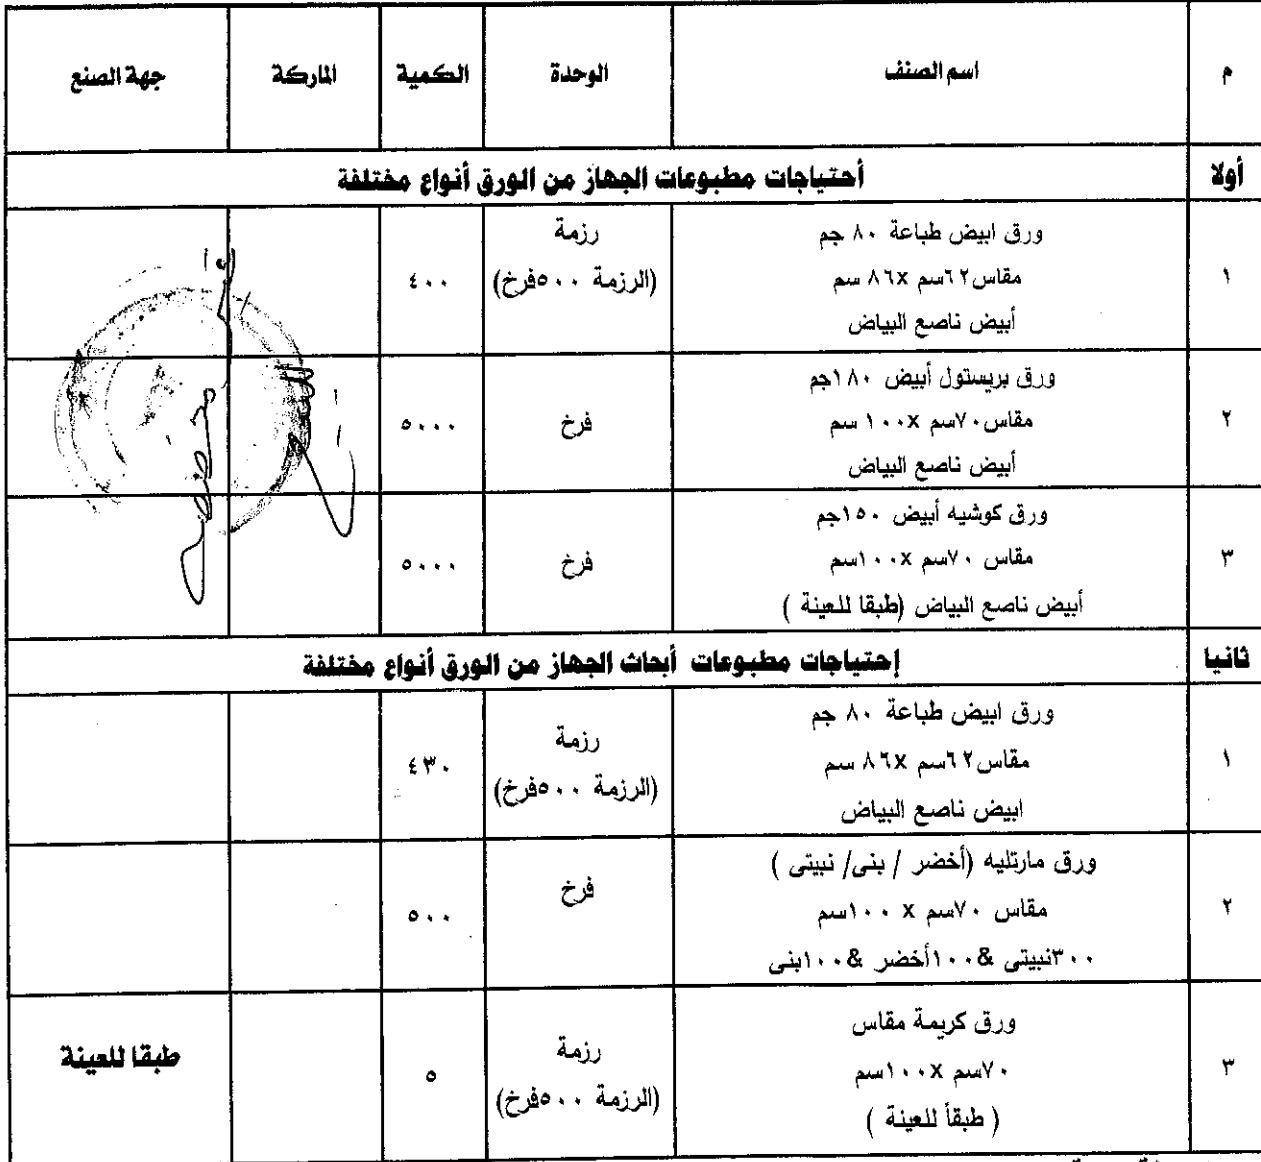 م اسم الصنف الوحدة الكمية الماركة جهة الصنع
أولا أحتياجات مطبوعات الجهاز من الورق أنواع مختلفة
١
ورق ابيض طباعة ٨٠ جم
مقاس٦٢سم x٨٦ سم
أبيض ناصع البياض
رزمة
(الرزمة ٥٠٠فرخ)
٤٠٠
٢
ورق بريستول أبيض ١٨٠جم
مقاس٧٠سم x١٠٠ سم
أبيض ناصع البياض
فرخ
٥٠٠٠
٣
ورق كوشيه أبيض ١٥٠جم
مقاس ٧٠سم x١٠٠سم
أبيض ناصع البياض (طبقا للعينة )
فرخ
٥٠٠٠
ثانيا إحتياجات مطبوعات أبحاث الجهاز من الورق أنواع مختلفة
١
ورق ابيض طباعة ٨٠ جم
مقاس٦٢سم x٨٦ سم
ابيض ناصع البياض
رزمة
(الرزمة ٥٠٠فرخ)
٤٣٠
٢
ورق مارتليه (أخضر / بنى/ نبيتى )
مقاس ٧٠سم x ١٠٠سم
٣٠٠نبيتى &١٠٠أخضر &١٠٠بنى
فرخ
٥٠٠
٣
ورق كريمة مقاس
٧٠سم x١٠٠سم
( طبقاً للعينة )
رزمة
(الرزمة ٥٠٠فرخ)
٥
طبقا للعينة